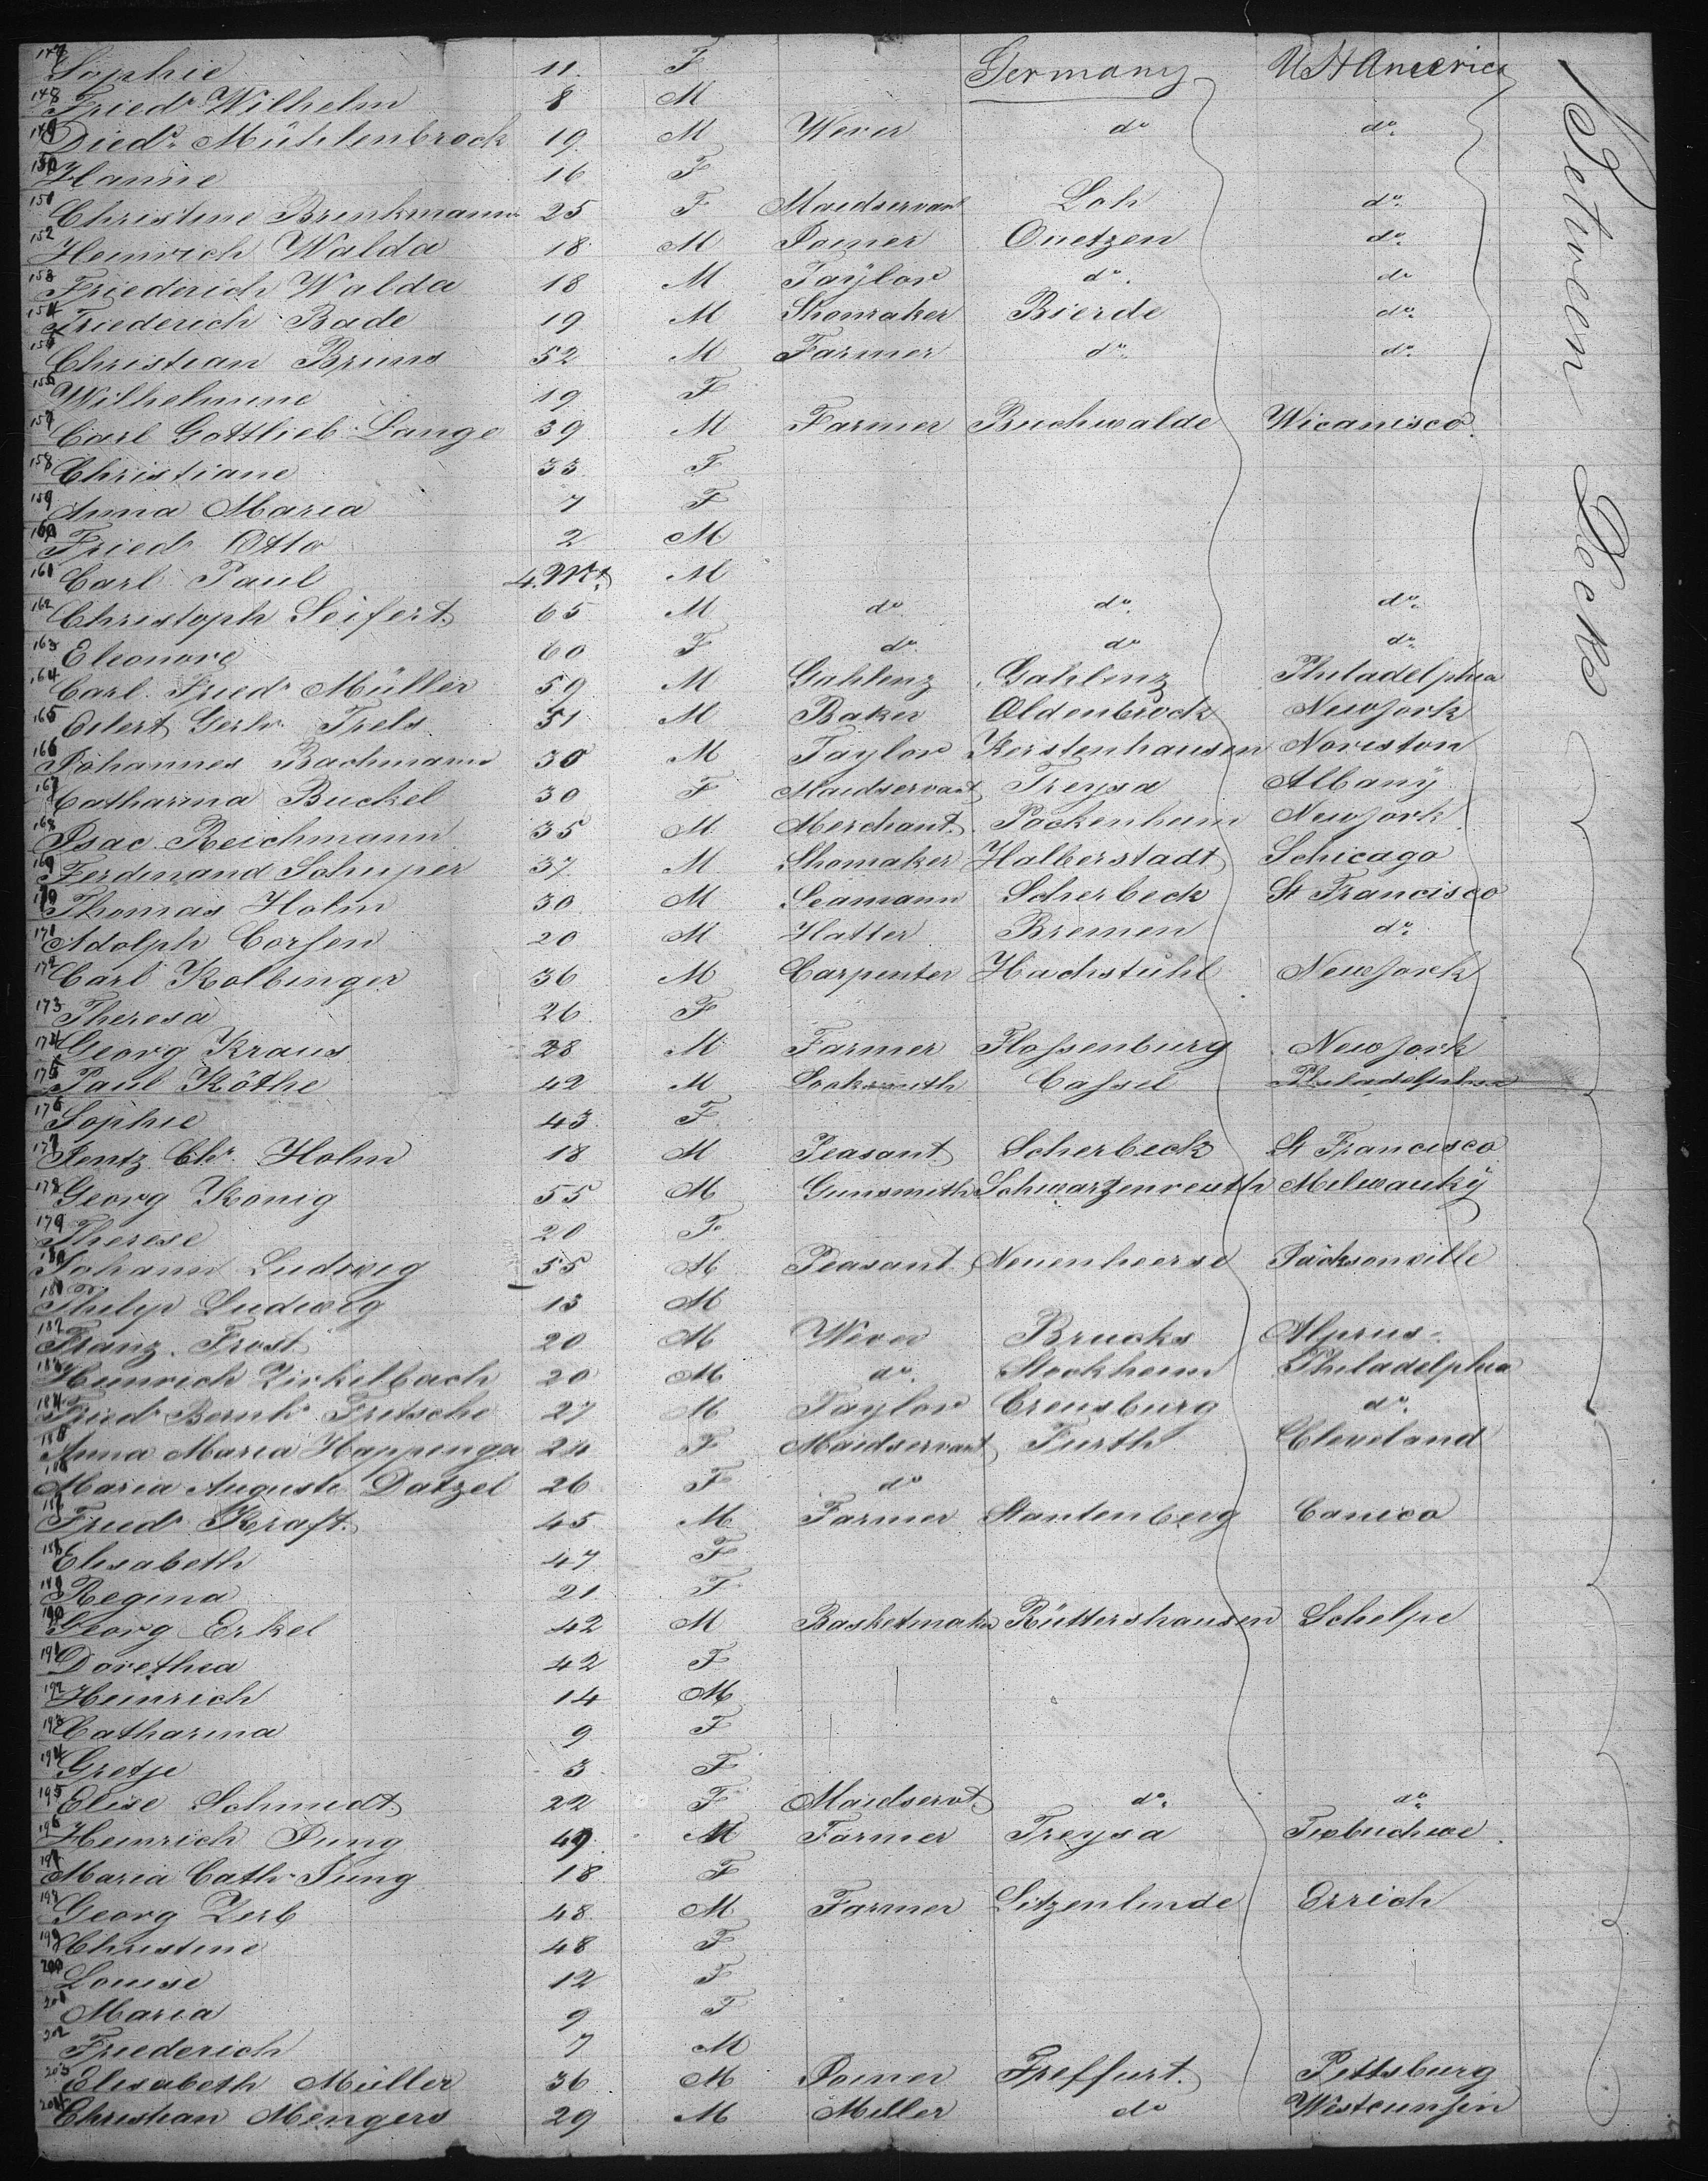 147 Sophie 11. F Germany U St America
148 Friedr. Wilhelm 8 M
149 Diedr. Mühlenbrock 19 M Wever do do
150 Hanne 16 F
151 Christine Brinkmann 25 F Maidservant Loh do
152 Heinrich Walda 18 M Joiner Quetzen do
153 Friederich Walda 18 M Taÿlor do do
154 Friederich Bade 19 M Shomaker Bierde do
Christian Bruns 52 M Farmer do do
Wilhelmine 19 F
157 Carl Gottlieb Lange 39 M Farmer Buchwalde Wicanisco
158 Christiane 33 F
159 Anna Maria 7 F
160 Friedr. Otto 2 M
161 Carl Paul 4. Mt. M
162 Christoph Seifert 65 M do do do
163 Eleonore 60 F do do do
164 Carl Friedr. Müller 59 M Gahlenz Gahlenz Philadelphia
165 Eilert Gerh. Trels 51 M Baker Oldenbrock New Jork
166 Johannes Bachmann 30 M Taylor Kerstenhausen Noriston
167 Catharina Buckel 30 F Maidservant Treysa Albanÿ
168 Isac Reichmann 35 M Merchant Pockenheim New Jork
169 Ferdinand Schuper 37 M Shomaker Halberstadt Schicago
170 Thomas Holm 30 M Seamann Scherbeck St Francisco
171 Adolph Corssen 20 M Hatter Bremen do
172 Carl Kolbinger 36 M Carpenter Hachstühl New Jork
173 Theresa 26 F
174 Georg Kraus 28 M Farmer Flossenburg New Jork
175 Paul Köthe 42 M Locksmith Cassel Philadelphia
176 Sophie 43 F
177 Jentz Chr. Holm 18 M Peasant Scherbeck St Francisco
178 Georg König 55 M Gunsmith Schwarzenreuth Milwaukÿ
179 Therese 20 F
180 Johann Ludwig 55 M Peasant Neuenheerse Jacksonville
181 Philip Ludwig 13 M
182 Franz Frost 20 M Wever Brucks Alprus
183 Heinrich Zirkelbach 20 M do Stockheim Philadelphia
184 Friedr. Bernh. Fritsche 27 M Taylor Creusburg do
185 Anna Maria Happinger 24 F Maidservant Furth Cleveland
Maria Auguste Datzel 26 F do
Friedr. Kraft 45 M Farmer Stantenberg Canico
188 Elisabeth 47 F
189 Regina 21 F
190 Georg Erkel 42 M Basketmaker Rüttershausen Schelpe
191 Dorethea 42 F
192 Heinrich 14 M
193 Catharina 9 F
194 Gretje 3 F
195 Elise Schmidt 22 F Maidservt. do do
196 Heinrich Jung 49 M Farmer Treysa
197 Maria Cath. Jung 18 F
198 Georg Zerb 48 M Farmer Sitzenlinde Errich
199 Christine 48 F
200 Louise 12 F
201 Maria 9 F
202 Friederich 7 M
203 Elisabeth Müller 36 M Joiner Treffurt Pittsburg
204 Christian Mengers 29 M Miller do Wistcunsin
Between Decks